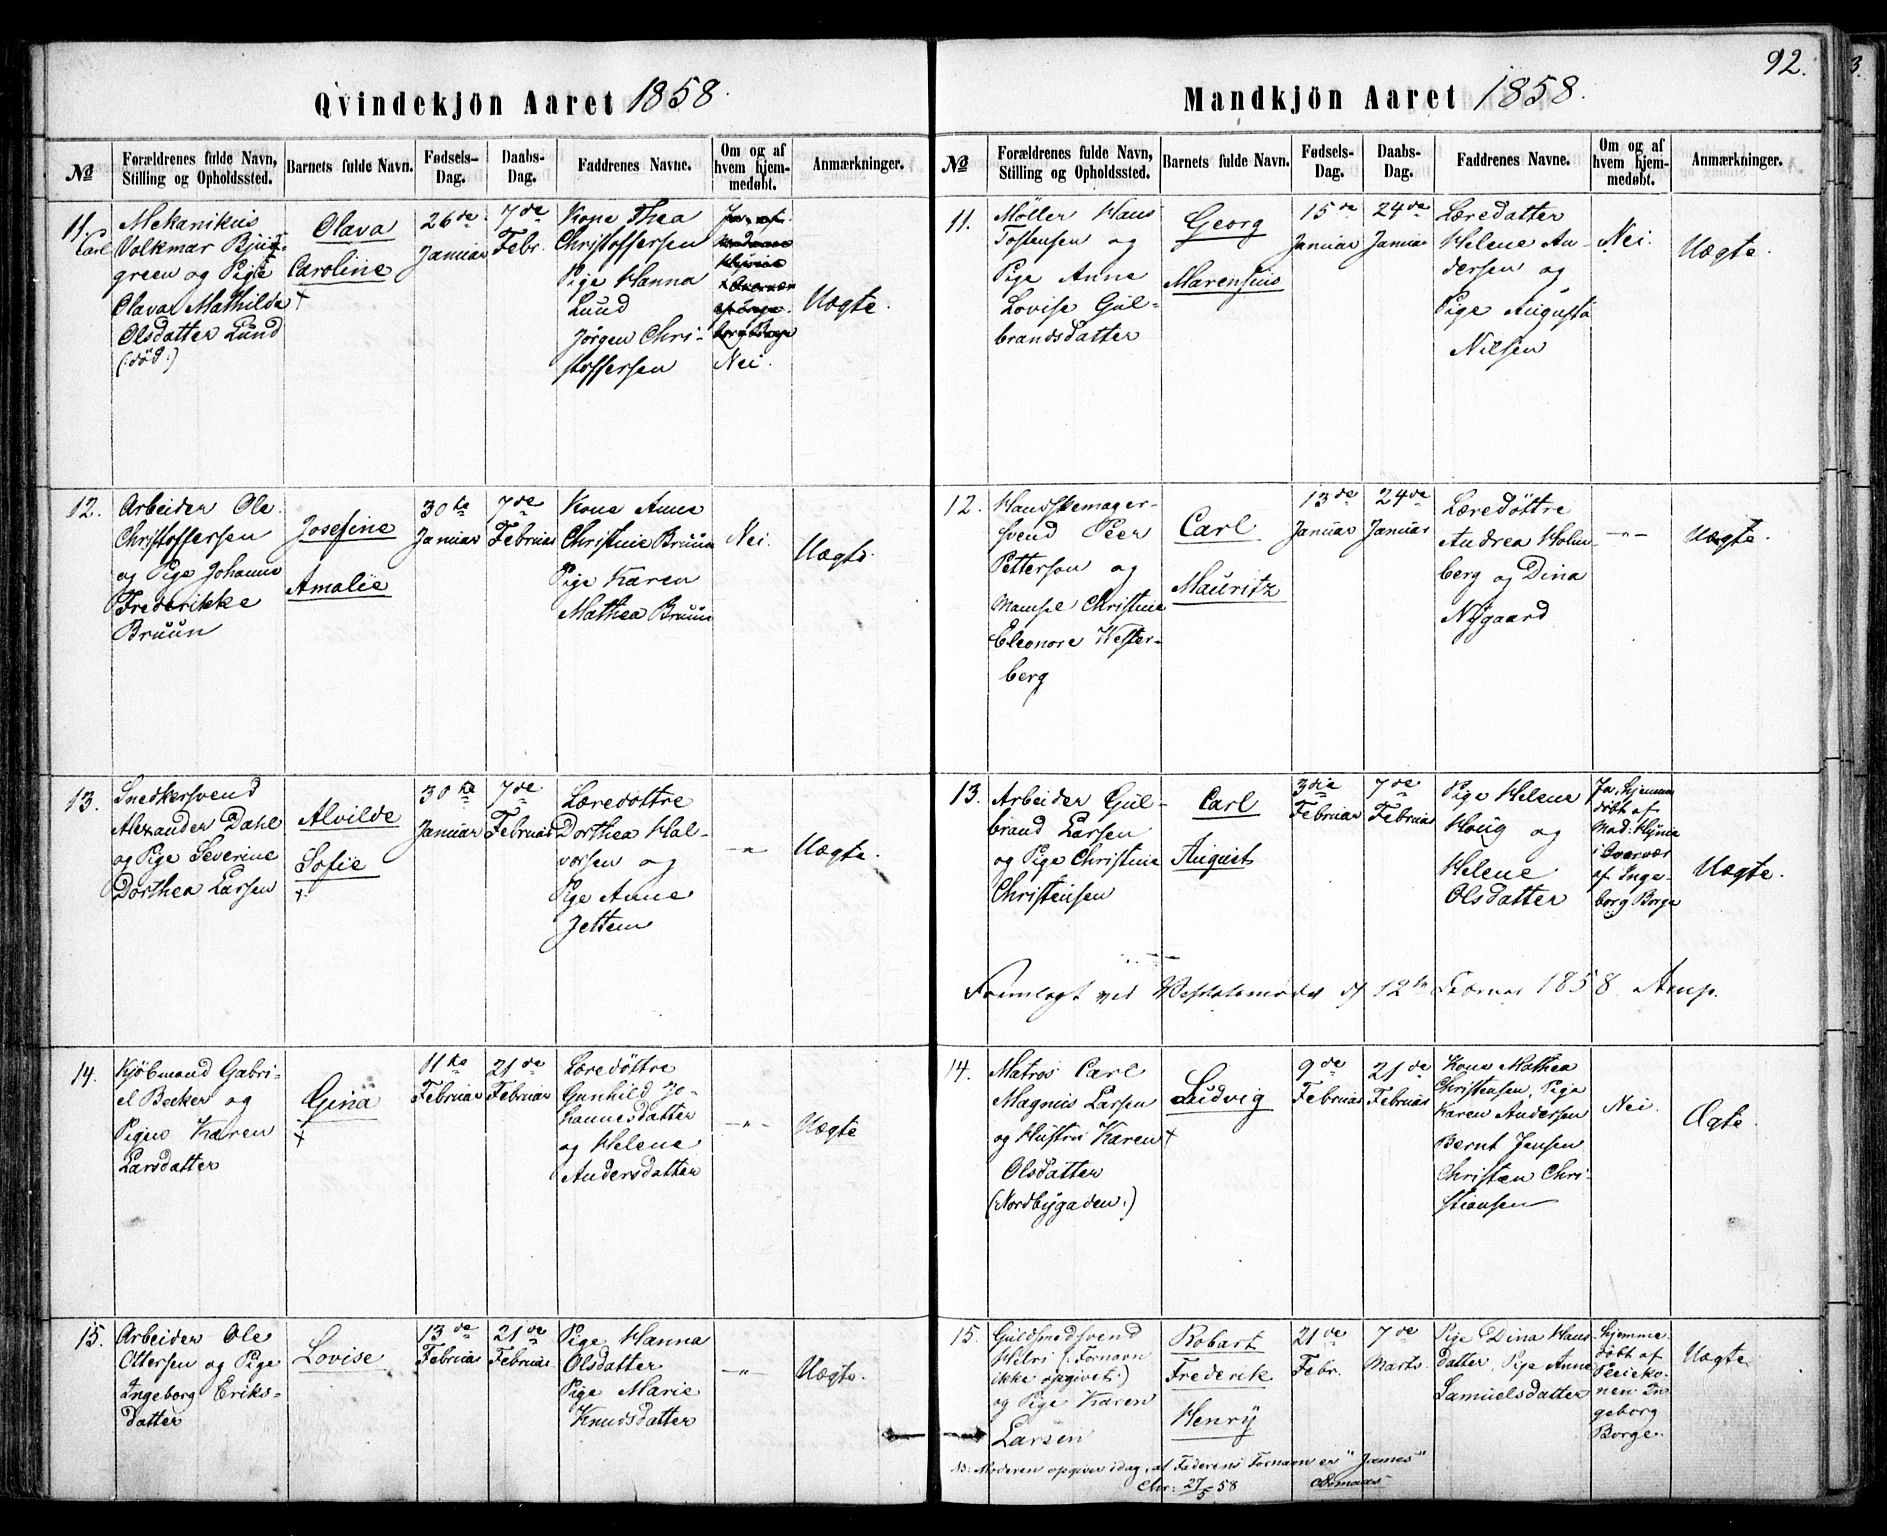 92.
Qvindekjön Aaret 1858.
№
Forældrenes fulde Navn, Stilling og Opholdssted.
Barnets fulde Navn.
Fødsels-Dag.
Daabs-Dag.
Faddrenes Navne.
Om og af hvem hjemmedøbt.
Anmærkninger.
11.
Carl
Mekanikus
Volkmar
green og Pige
Olava Mathilde
Olsdatter Lund
(:død:)
Olava
Caroline
+
26de
Januar
7de
Febr.
Kone Thea
Christoffersen
Pige Hanna
Lund
Jørgen Chri-
stoffersen
Nei.
Uægte.
12.
Arbeider Ole
Christoffersen
og Pige Johanne
Frederikke
Bruun
Josefine
Amalie
30te
Januar
7de
Februar
Kone Anne
Christine Bruun
Pige Karen
Mathea Bruun
Nei.
Uægte.
13.
Snedkersvend
Alexander Dahl
og Pige Severine
Dorthea Larsen
Alvilde
Sofie
+
30te
Januar
7de
Februar
Læredøttre
Dorthea Hal-
vorsen og
Pige Anne
Jettem
-"-
Uægte.
14.
Kjöbmand Gabri-
el Becker og
Pigen Karen
Larsdatter
Gina
+
11te
Februar
21de
Februar
Læredøttre
Gunhild Jo-
hannesdatter
og Helene
Andersdatter
-"-
Uægte
15.
Arbeider Ole
Ottersen og Pige
Ingeborg Eriks-
datter
Lovise
13de
Februar
21de
Februar
Pige Hanna
Olsdatter
Pige Marie
Knudsdatter
-"-
Uægte.
Mandkjön Aaret 1858.
№
Forældrenes fulde Navn, Stilling og Opholdssted.
Barnets fulde Navn.
Fødsels-Dag.
Daabs-Dag.
Faddrenes Navne.
Om og af hvem hjemmedøbt.
Anmærkninger.
11.
Møller Hans
Tostensen og
Pige Anne
Lovise Gul-
brandsdatter
Georg
Marensius
15de
Januar
24de
Januar
Læredatter
Helene An-
dersen og
Pige Augusta
Nilsen
Nei.
Uægte.
12.
Handskemager-
svend Peer
Petterson og
Mamsel Christine
Eleonore Wester-
berg
Carl
Mauritz
13de
Januar
24de
Januar
Læredøttre
Andrea Holm-
berg og Dina
Nygaard
-"-
Uægte.
13.
Arbeider Gul-
brand Larsen
og Pige Christine
Christensen
Carl
August
3die
Februar
7de
Februar
Pige Helene
Houg og
Helene
Olsdatter
Ja, hjemme
døbt af
Mad: Hynne
i Overvær
af Inge-
borg Borge
Uægte.
-"-
Fremlagt ved 12te Februar 1858.
14.
Matros Carl
Magnus Larsen
og Hustru Karen
Olsdatter
(Nordbygaden.)
Ludvig
+
9de
Februar
21de
Februar
Kone Mathea
Christensen, Pige
Karen Andersen
Bernt Jensen
Christian Chri-
stiansen
Nei.
Ægte.
15.
Guldsmedsvend
Helri (: Fornavn
ikke opgivet:)
og Pige Karen
Larsen
Robart
Frederik
Henry
21de
Febr.
7de
Marts
Pige Dina Hans
datter, Pige Anne
Samuelsdatter
hjemme-
døbt af
Pleieko-
nen In-
geborg
Borge.
Uægte
NB: Moderen opgiver idag, at Faderens Fornavn er "James"
Chr: 27/5 58